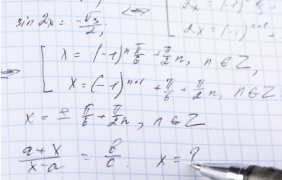 sin 2x = -√3/2,
2x = (-1)ⁿ
2x = (-1)ⁿ⁺¹
⇒ [ x = (-1)ⁿ π/6 + π/2 n, n ∈ Z,
x = (-1)ⁿ⁺¹ + π/6 + π/2 n, n ∈ Z
x = ± π/6 + π/2 n, n ∈ Z
a+x/x-a = b/c x = ?